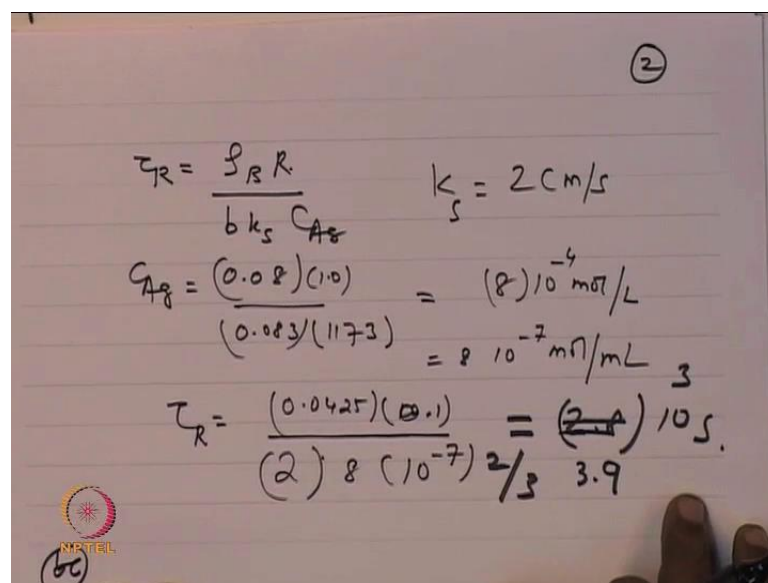 ②
τR = ρB R. / b ks CAg     ks = 2 cm/s
CAg = (0.08)(1.0) / (0.083)(1173) = (8) 10^-4 mol/L
= 8 10^-7 mol/mL
τR = (0.0425)(0.1) / (2) 8 (10^-7) 2/3 = (3.9) 10^3 s.
NPTEL